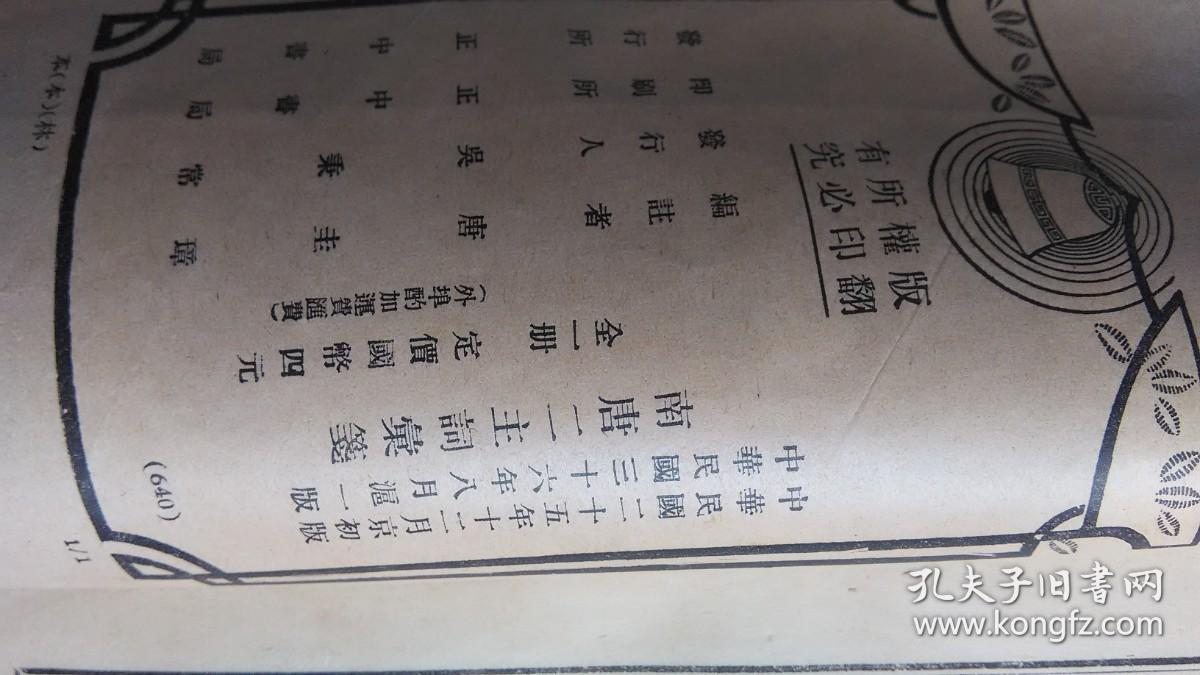 版權所有
翻印必究
中華民國二十五年十二月京初版
中華民國三十六年八月滬一版
南唐二主詞彙箋
全一册 定價國幣四元
(外埠酌加運費匯費)
編註者 唐圭璋
發行人 吳秉常
印刷所 正中書局
發行所 正中書局
(640)
1/1
孔夫子旧书网
www.kongfz.com